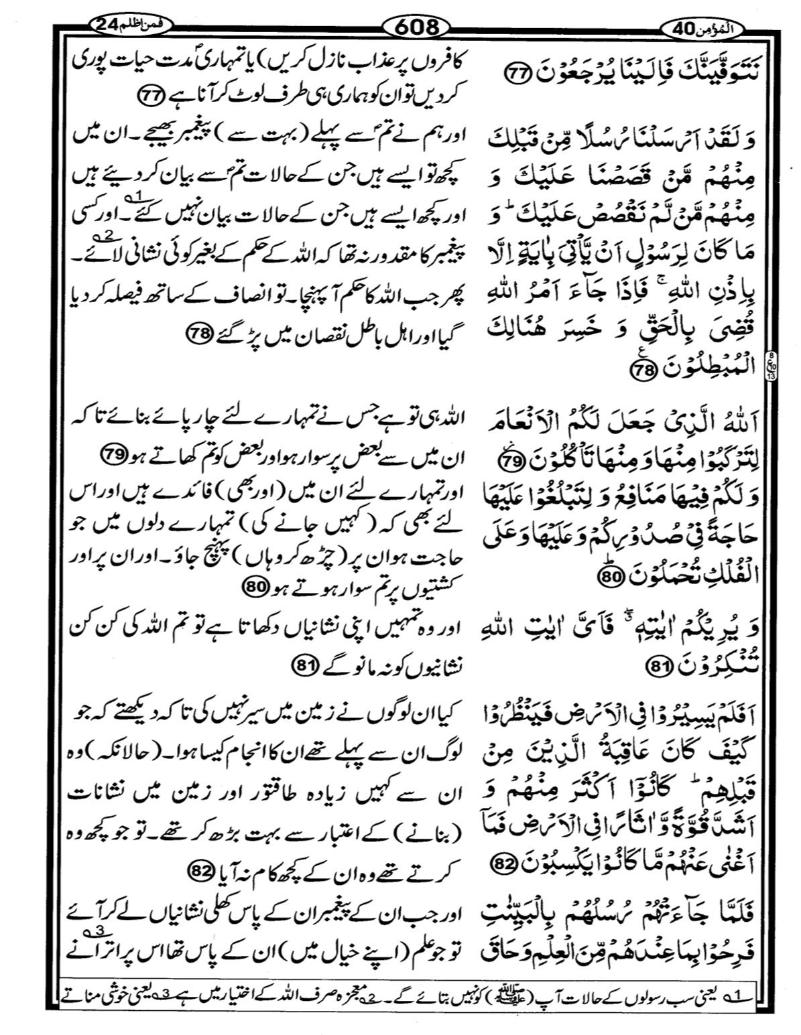 المؤمن 40
608
فمن اظلم 24
نَتَوَفَّيَنَّكَ فَاِلَيْنَا يُرْجَعُوْنَ 77
وَ لَقَدْ اَرْسَلْنَا رُسُلًا مِّنْ قَبْلِكَ
مِنْهُمْ مَّنْ قَصَصْنَا عَلَيْكَ وَ
مِنْهُمْ مَّنْ لَّمْ نَقْصُصْ عَلَيْكَ ؕ وَ
مَا كَانَ لِرَسُوْلٍ اَنْ يَّاْتِيَ بِاٰيَةٍ اِلَّا
بِاِذْنِ اللّٰهِ ۚ فَاِذَا جَآءَ اَمْرُ اللّٰهِ
قُضِيَ بِالْحَقِّ وَ خَسِرَ هُنَالِكَ
الْمُبْطِلُوْنَ 78 ع
اَللّٰهُ الَّذِيْ جَعَلَ لَكُمُ الْاَنْعَامَ
لِتَرْكَبُوْا مِنْهَا وَ مِنْهَا تَاْكُلُوْنَ 79
وَ لَكُمْ فِيْهَا مَنَافِعُ وَ لِتَبْلُغُوْا عَلَيْهَا
حَاجَةً فِيْ صُدُوْرِكُمْ وَ عَلَيْهَا وَ عَلَى
الْفُلْكِ تُحْمَلُوْنَ 80 ؕ
وَ يُرِيْكُمْ اٰيٰتِهٖ ۖ فَاَيَّ اٰيٰتِ اللّٰهِ
تُنْكِرُوْنَ 81
اَفَلَمْ يَسِيْرُوْا فِي الْاَرْضِ فَيَنْظُرُوْا
كَيْفَ كَانَ عَاقِبَةُ الَّذِيْنَ مِنْ
قَبْلِهِمْ ؕ كَانُوْۤا اَكْثَرَ مِنْهُمْ وَ
اَشَدَّ قُوَّةً وَّ اٰثَارًا فِي الْاَرْضِ فَمَاۤ
اَغْنٰى عَنْهُمْ مَّا كَانُوْا يَكْسِبُوْنَ 82
فَلَمَّا جَآءَتْهُمْ رُسُلُهُمْ بِالْبَيِّنٰتِ
فَرِحُوْا بِمَا عِنْدَهُمْ مِّنَ الْعِلْمِ وَ حَاقَ
کافروں پر عذاب نازل کریں) یا تمہاریؐ مدت حیات پوری
کردیں تو ان کو ہماری ہی طرف لوٹ کر آنا ہے 77
اور ہم نے تمؐ سے پہلے (بہت سے) پیغمبر بھیجے۔ ان میں
کچھ تو ایسے ہیں جن کے حالات تمؐ سے بیان کر دیئے ہیں
اور کچھ ایسے ہیں جن کے حالات بیان نہیں کئے 1۔ اور کسی
پیغمبر کا مقدور نہ تھا کہ اللہ کے حکم کے بغیر کوئی نشانی لائے 2۔
پھر جب اللہ کا حکم آپہنچا۔ تو انصاف کے ساتھ فیصلہ کر دیا
گیا اور اہل باطل نقصان میں پڑ گئے 78
اللہ ہی تو ہے جس نے تمہارے لئے چار پائے بنائے تا کہ
ان میں سے بعض پر سوار ہو اور بعض کو تم کھاتے ہو 79
اور تمہارے لئے ان میں (اور بھی) فائدے ہیں اور اس
لئے بھی کہ (کہیں جانے کی) تمہارے دلوں میں جو
حاجت ہو ان پر (چڑھ کر وہاں) پہنچ جاؤ۔ اور ان پر اور
کشتیوں پر تم سوار ہوتے ہو 80
اور وہ تمہیں اپنی نشانیاں دکھاتا ہے تو تم اللہ کی کن کن
نشانیوں کو نہ مانو گے 81
کیا ان لوگوں نے زمین میں سیر نہیں کی تا کہ دیکھتے کہ جو
لوگ ان سے پہلے تھے ان کا انجام کیسا ہوا۔ (حالانکہ) وہ
ان سے کہیں زیادہ طاقتور اور زمین میں نشانات
(بنانے) کے اعتبار سے بہت بڑھ کر تھے۔ تو جو کچھ وہ
کرتے تھے وہ ان کے کچھ کام نہ آیا 82
اور جب ان کے پیغمبر ان کے پاس کھلی نشانیاں لے کر آئے
تو جو علم (اپنے خیال میں) ان کے پاس تھا اس پر اترانے 3
1 یعنی سب رسولوں کے حالات آپ (ﷺ) کو نہیں بتائے گے۔ 2 معجزہ صرف اللہ کے اختیار میں ہے 3 یعنی خوشی مناتے